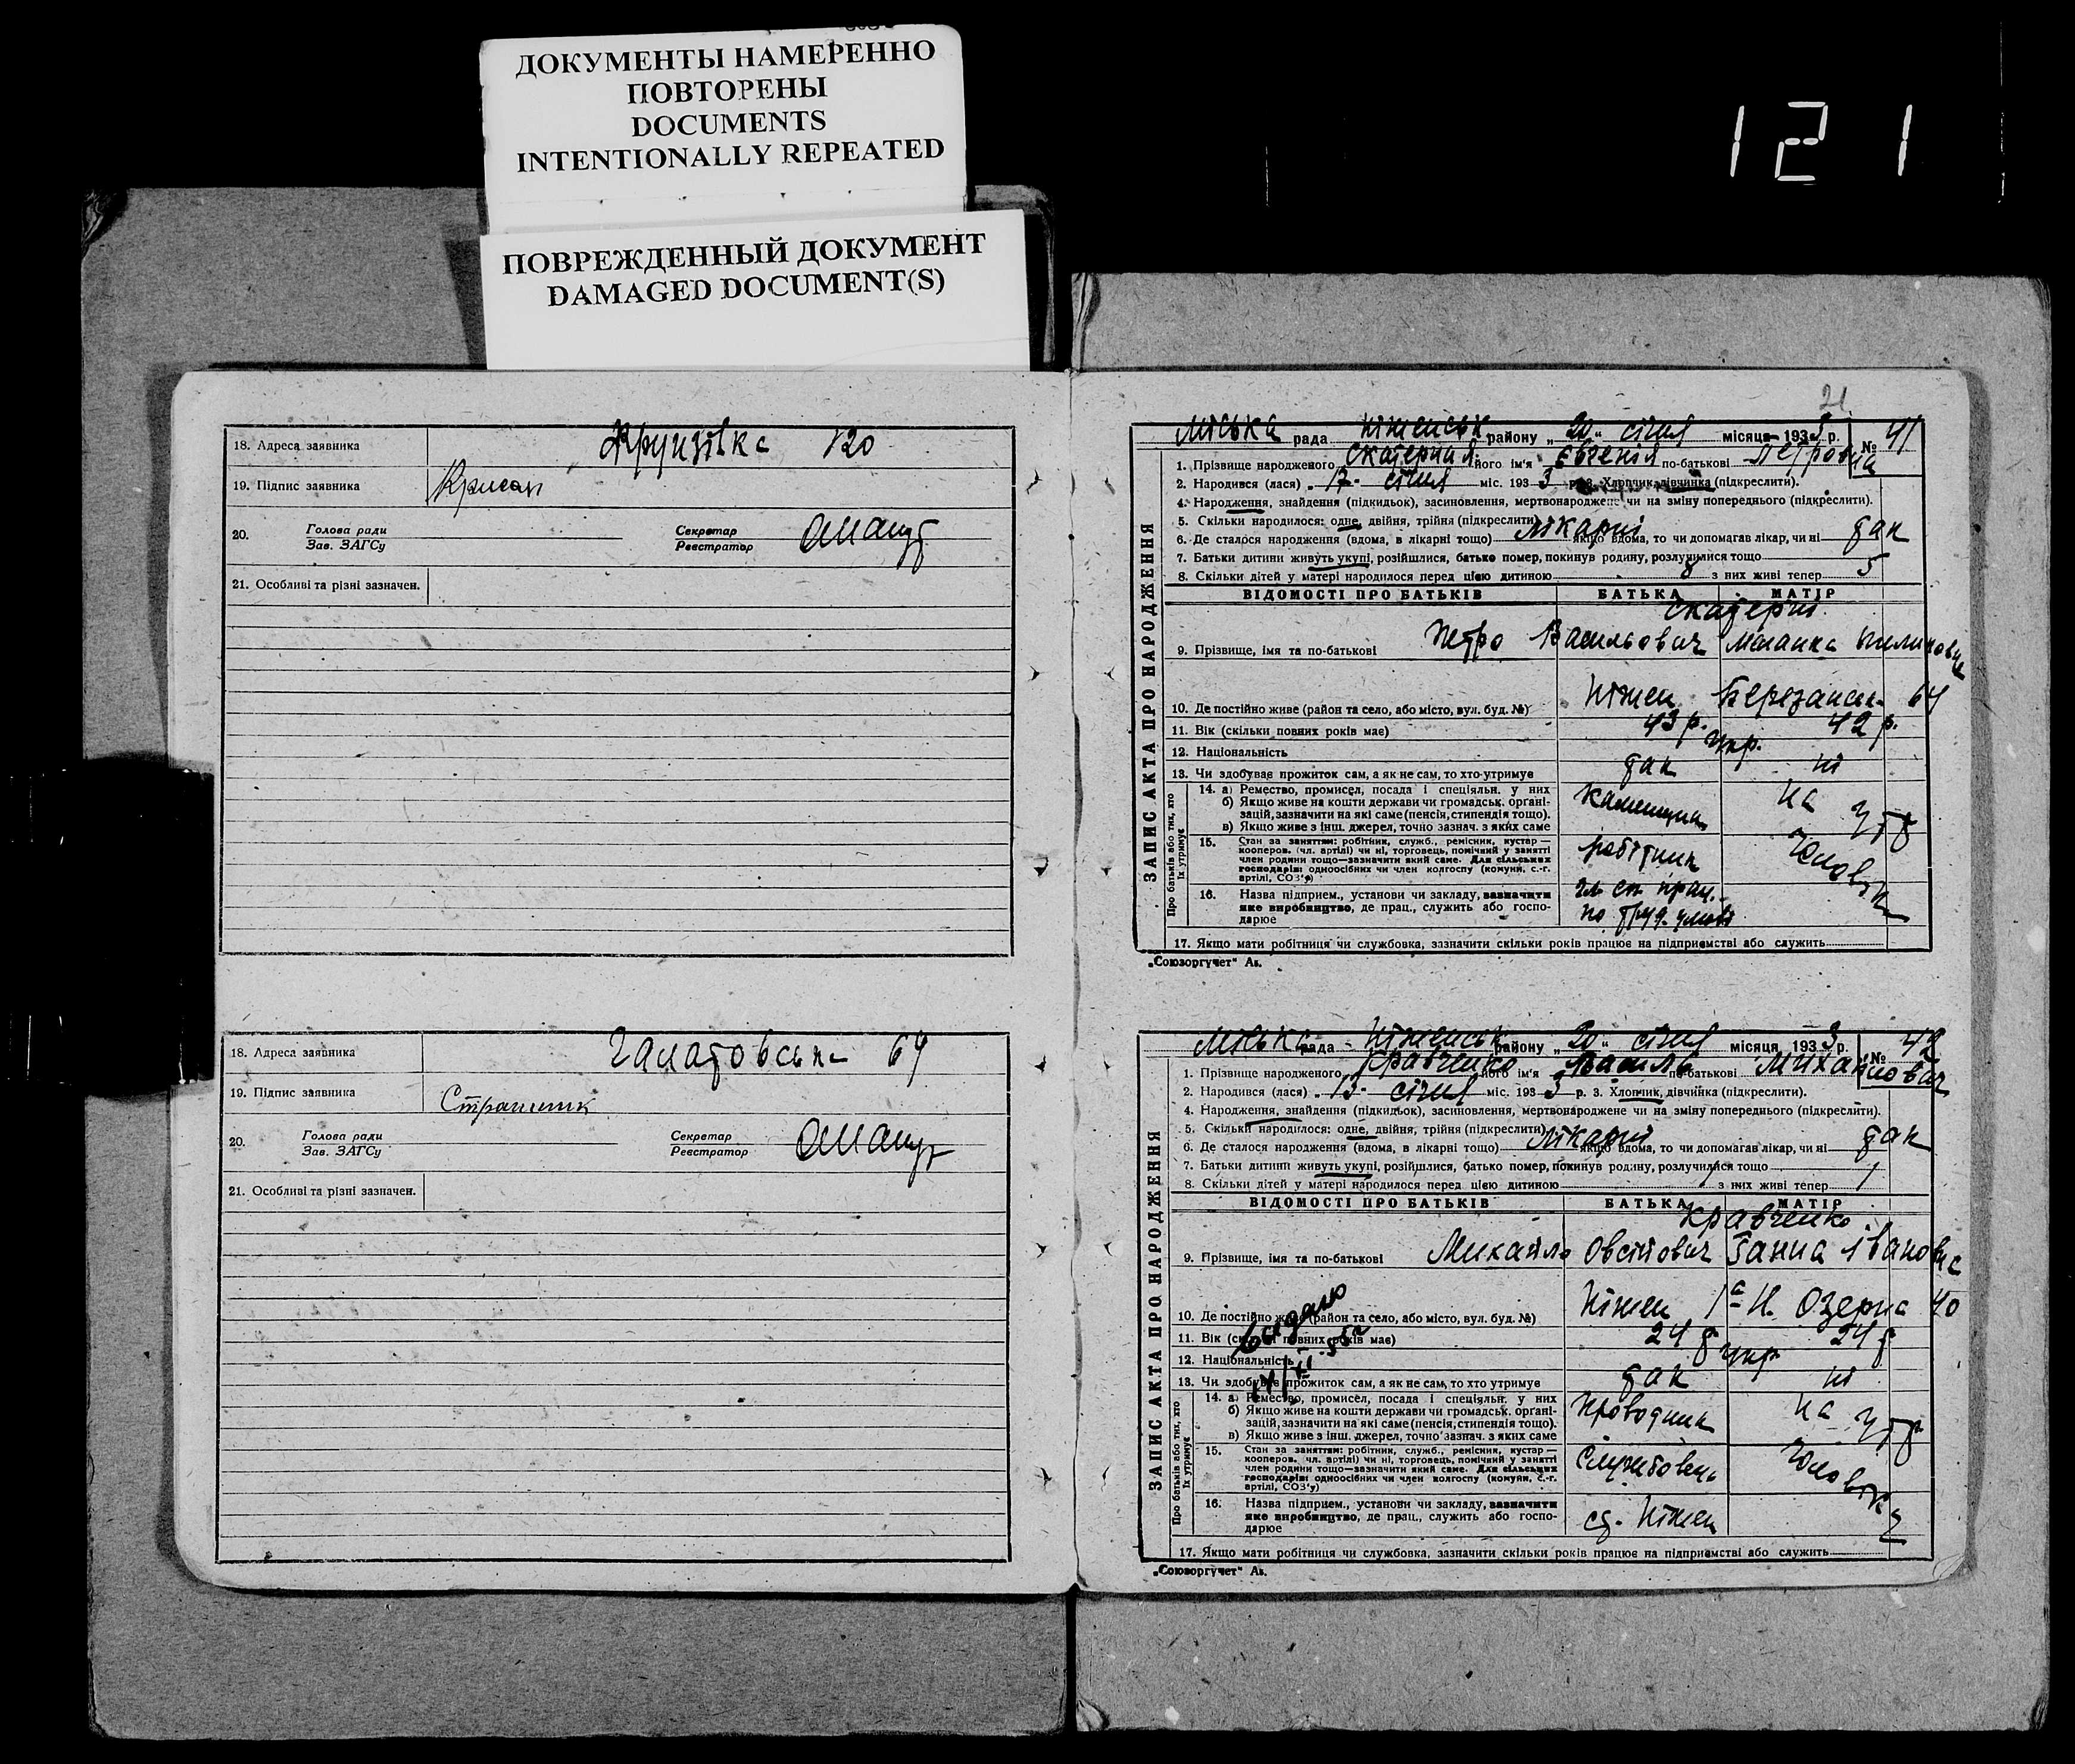 ДОКУМЕНТЫ НАМЕРЕННО
ПОВТОРЕНЫ
DOCUMENTS
INTENTIONALLY REPEATED
ПОВРЕЖДЕННЫЙ ДОКУМЕНТ
DAMAGED DOCUMENT(S)
121
18. Адреса заявника 120
19. Підпис заявника
20. Голова ради Секретар
Зав. ЗАГСу Реєстратор
21. Особливі та різні зазначен.
18. Адреса заявника 64
19. Підпис заявника
20. Голова ради Секретар
Зав. ЗАГСу Реєстратор
21. Особливі та різні зазначен.
21
ЗАПИС АКТА ПРО НАРОДЖЕННЯ
Міська рада Ніженськ району „20“ січня місяця 193 р. № 41
1. Прізвище народженого його ім'я Євгенія по-батькові Петровна
2. Народився (лася) 17 січня міс. 1933 р. 3. Хлопчик, дівчинка (підкреслити).
4. Народження, знайдення (підкидьок), засиновлення, мертвонароджене чи на зміну попереднього (підкреслити).
5. Скільки народилося: одне, двійня, трійня (підкреслити)
6. Де сталося народження (вдома, в лікарні тощо) лікарні якщо вдома, то чи допомагав лікар, чи ні так
7. Батьки дитини живуть укупі, розійшлися, батько помер, покинув родину, розлучилися тощо
8. Скільки дітей у матері народилося перед цією дитиною 8 з них живі тепер 5
ВІДОМОСТІ ПРО БАТЬКІВ БАТЬКА МАТІР
9. Прізвище, імя та по-батькові Петро Васильович Меланка Пилиповна
10. Де постійно живе (район та село, або місто, вул. буд. №) Ніжен Березанськ 64
11. Вік (скільки повних років має) 43 р. 42 р.
12. Національність Укр.
13. Чи здобуває прожиток сам, а як не сам, то хто утримує так ні
Про батьків або тих, хто їх утримує
14. а) Ремество, промисел, посада і спеціяльн. у них
б) Якщо живе на кошти держави чи громадськ. органі-
зацій, зазначити на які саме (пенсія, стипендія тощо).
в) Якщо живе з інш. джерел, точно зазнач. з яких саме
на утр
15. Стан за заняттям: робітник, служб., ремісник, кустар —
кооперов. (чл. артілі) чи ні, торговець, помічний у занятті
член родини тощо—зазначити який саме. Для сільських
господарів: одноосібних чи член колгоспу (комуни, с.-г.
артілі, СОЗ'у)
робітник
16. Назва підприєм., установи чи закладу, зазначити
яке виробництво, де прац., служить або госпо-
дарює
17. Якщо мати робітниця чи службовка, зазначити скільки років працює на підприємстві або служить
„Союзоргучет“ Ак.
ЗАПИС АКТА ПРО НАРОДЖЕННЯ
Міська рада Ніженськ району „20“ січня місяця 1933 р. № 42
1. Прізвище народженого Кравченко його ім'я Василь по-батькові Михайлович
2. Народився (лася) 13 січня міс. 1933 р. 3. Хлопчик, дівчинка (підкреслити).
4. Народження, знайдення (підкидьок), засиновлення, мертвонароджене чи на зміну попереднього (підкреслити).
5. Скільки народилося: одне, двійня, трійня (підкреслити)
6. Де сталося народження (вдома, в лікарні тощо) лікарні якщо вдома, то чи допомагав лікар, чи ні так
7. Батьки дитини живуть укупі, розійшлися, батько помер, покинув родину, розлучилися тощо
8. Скільки дітей у матері народилося перед цією дитиною 1 з них живі тепер 1
ВІДОМОСТІ ПРО БАТЬКІВ БАТЬКА МАТІР
Кравченко
9. Прізвище, імя та по-батькові Михайло Овсійович Ганна Івановна
10. Де постійно живе (район та село, або місто, вул. буд. №) Ніжен Озерна 40
11. Вік (скільки повних років має) 24 24
12. Національність Укр
13. Чи здобуває прожиток сам, а як не сам, то хто утримує так ні
Про батьків або тих, хто їх утримує
14. а) Ремество, промисел, посада і спеціяльн. у них
б) Якщо живе на кошти держави чи громадськ. органі-
зацій, зазначити на які саме (пенсія, стипендія тощо).
в) Якщо живе з інш. джерел, точно зазнач. з яких саме
Проводник на утр
15. Стан за заняттям: робітник, служб., ремісник, кустар —
кооперов. чл. артілі) чи ні, торговець, помічний у занятті
член родини тощо—зазначити який саме. Для сільських
господарів: одноосібних чи член колгоспу (комуни, с.-г.
артілі, СОЗ'у)
Службовець
16. Назва підприєм., установи чи закладу, зазначити
яке виробництво, де прац., служить або госпо-
дарює
ст. Ніжен
17. Якщо мати робітниця чи службовка, зазначити скільки років працює на підприємстві або служить
„Союзоргучет“ Ак.